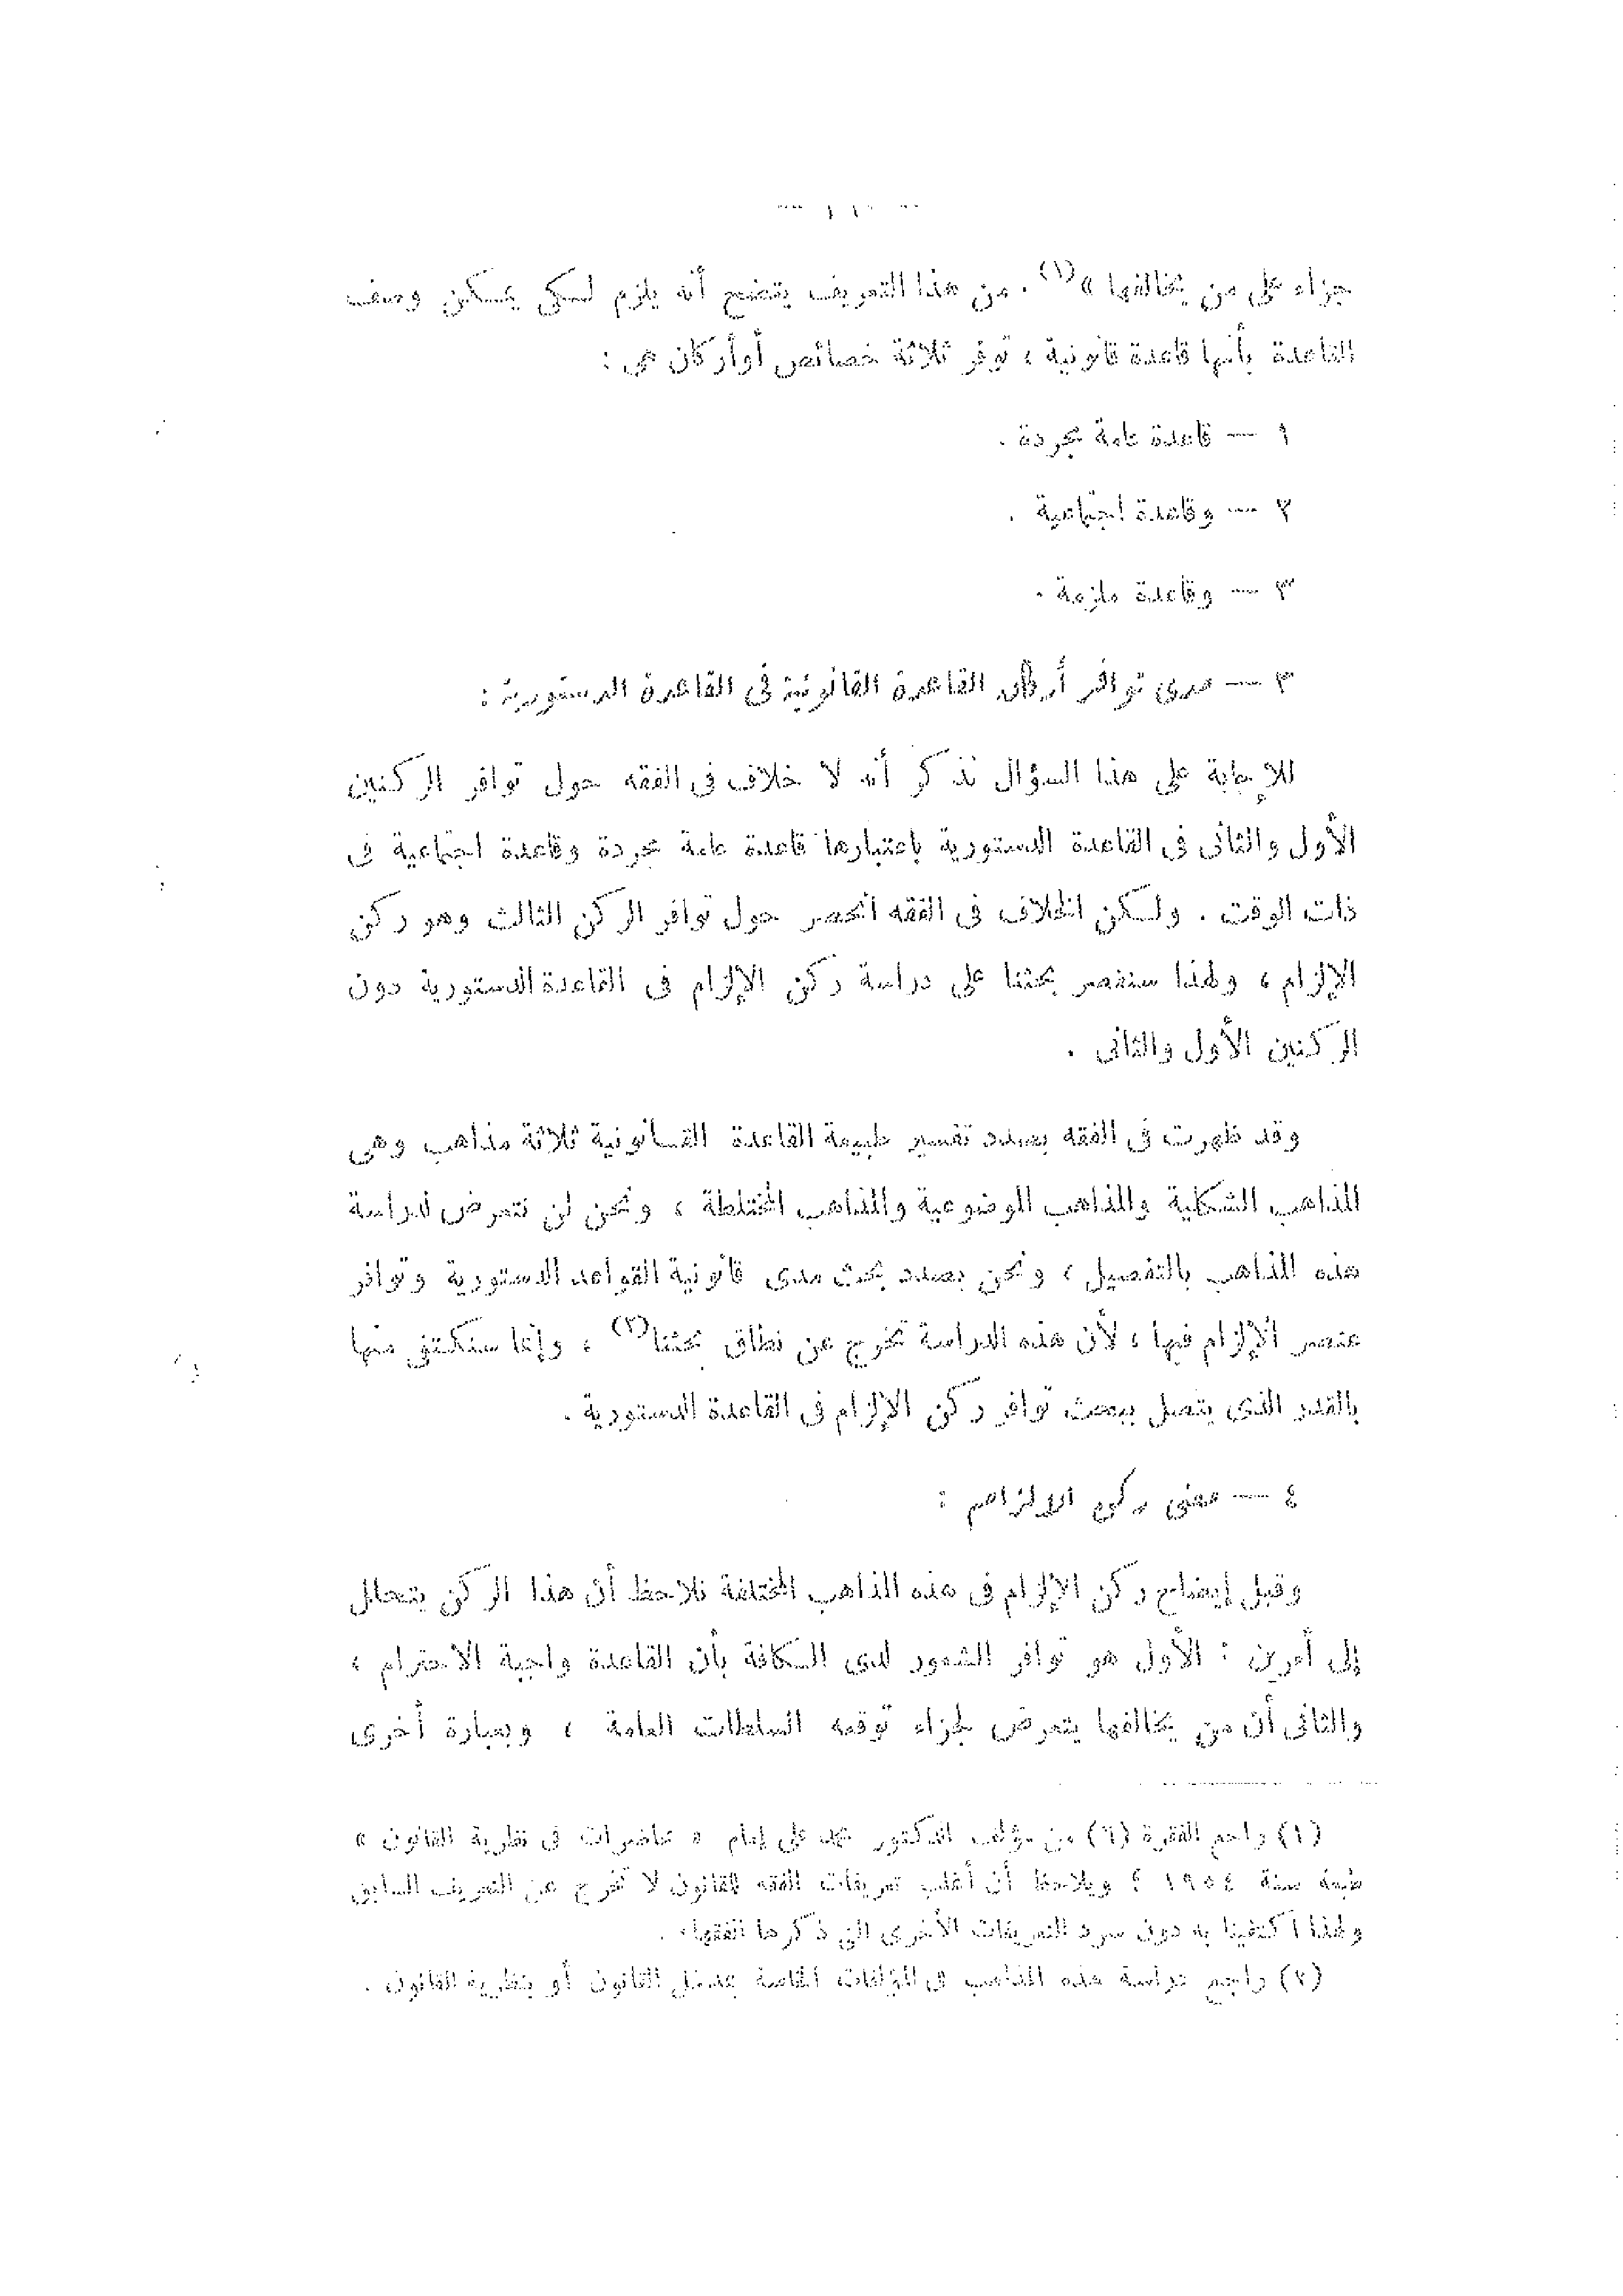 جزاء على من يخالفها » (١) . من هذا التعريف يتضح أنه يلزم لكى يمكن وصف
القاعدة بأنها قاعدة قانونية ، توفر ثلاثة خصائص أو أركان هى :
١ — قاعدة عامة مجردة .
٢ — وقاعدة اجتماعية .
٣ — وقاعدة ملزمة .
٣ — مدى توافر أركان القاعدة القانونية فى القاعدة الدستورية :
للإجابة على هذا السؤال نذكر أنه لا خلاف فى الفقه حول توافر الركنين
الأول والثانى فى القاعدة الدستورية باعتبارها قاعدة عامة مجردة وقاعدة اجتماعية فى
ذات الوقت . ولكن الخلاف فى الفقه انحصر حول توافر الركن الثالث وهو ركن
الإلزام ، ولهذا سنقصر بحثنا على دراسة ركن الإلزام فى القاعدة الدستورية دون
الركنين الأول والثانى .
وقد ظهرت فى الفقه بصدد تفسير طبيعة القاعدة القانونية ثلاثة مذاهب وهى
المذاهب الشكلية والمذاهب الموضوعية والمذاهب المختلطة ، ونحن لن نتعرض لدراسة
هذه المذاهب بالتفصيل ، ونحن بصدد بحث مدى قانونية القواعد الدستورية وتوافر
عنصر الإلزام فيها ، لأن هذه الدراسة تخرج عن نطاق بحثنا (٢) ، وإنما سنكتفى منها
بالقدر الذى يتصل ببحث توافر ركن الإلزام فى القاعدة الدستورية .
٤ — معنى ركن الالزام :
وقبل إيضاح ركن الإلزام فى هذه المذاهب المختلفة نلاحظ أن هذا الركن يتحلل
إلى أمرين : الأول هو توافر الشعور لدى الكافة بأن القاعدة واجبة الاحترام ،
والثانى أن من يخالفها يتعرض لجزاء توقعه السلطات العامة ، وبعبارة أخرى
(١) راجع الفقرة (٦) من مؤلف الدكتور محمد على إمام « محاضرات فى نظرية القانون »
طبعة سنة ١٩٥٤ ؛ ويلاحظ أن أغلب تعريفات الفقه للقانون لا تخرج عن التعريف السابق
ولهذا اكتفينا به دون سرد التعريفات الأخرى التى ذكرها الفقهاء .
(٢) راجع دراسة هذه المذاهب فى المؤلفات الخاصة بمدخل القانون أو بنظرية القانون .